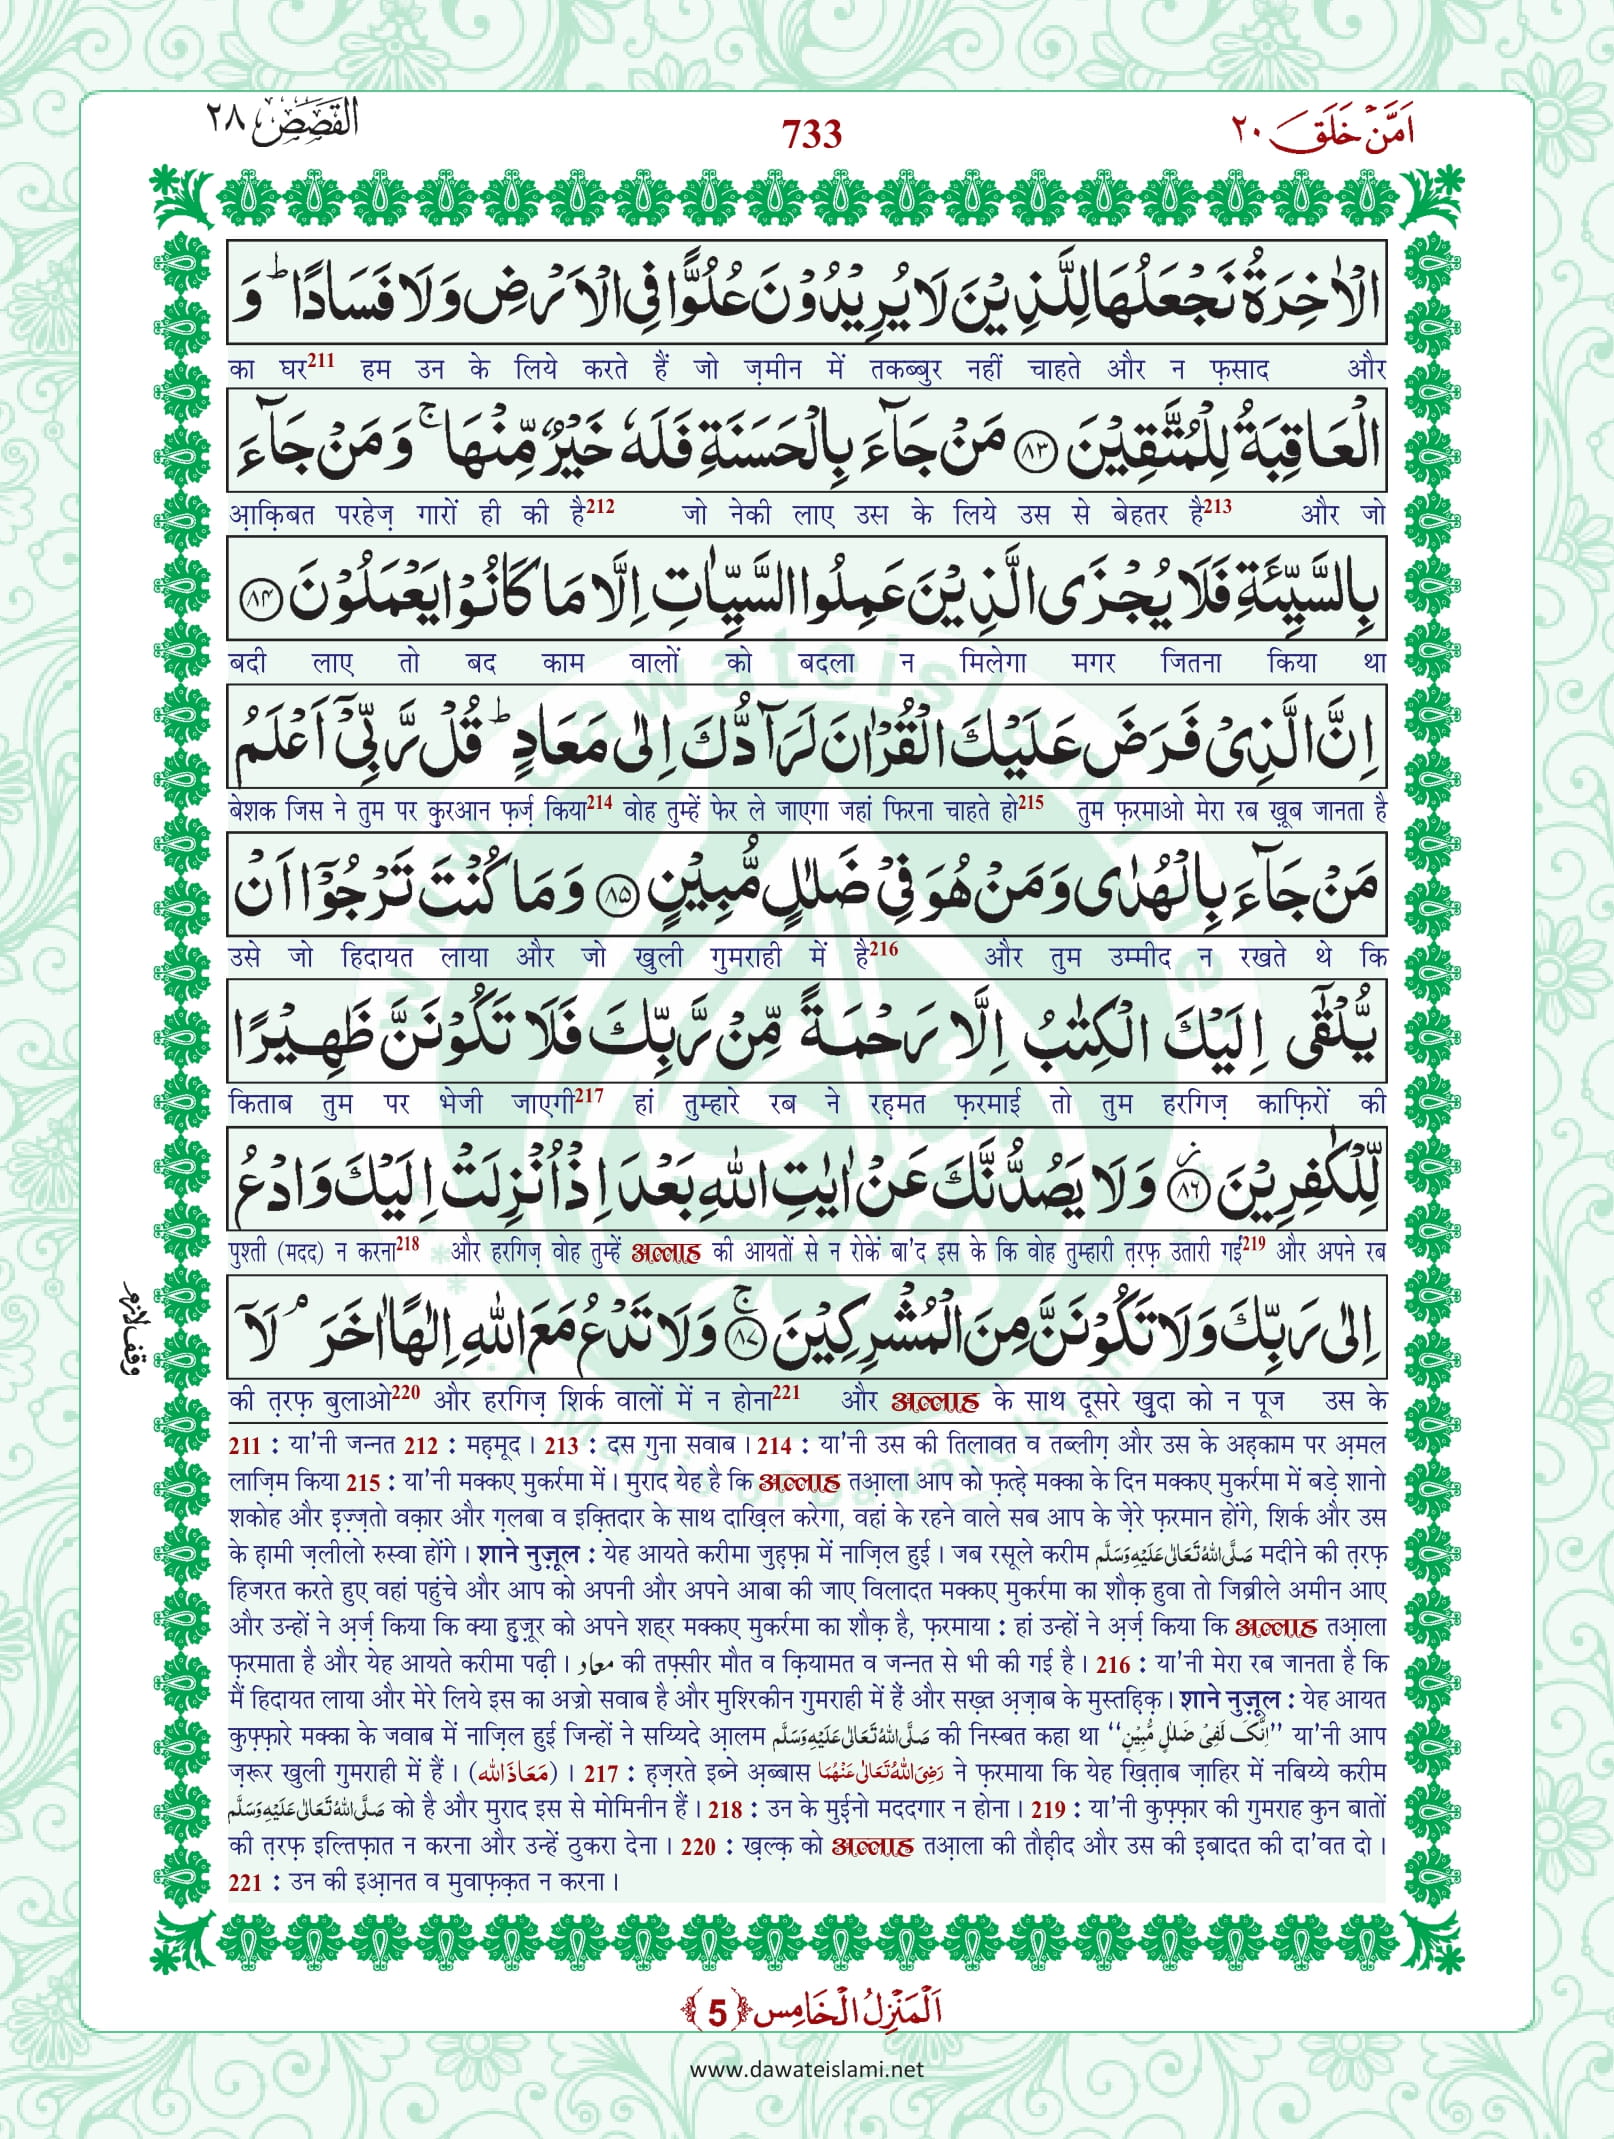 اَمَّنْ خَلَقَ ٢٠
733
القَصَص ٢٨
الْاٰخِرَةُ نَجْعَلُهَا لِلَّذِیْنَ لَا یُرِیْدُوْنَ عُلُوًّا فِی الْاَرْضِ وَ لَا فَسَادًاؕ وَ
का घर211 हम उन के लिये करते हैं जो ज़मीन में तकब्बुर नहीं चाहते और न फ़साद और
الْعَاقِبَةُ لِلْمُتَّقِیْنَ ﴿۸۳﴾ مَنْ جَآءَ بِالْحَسَنَةِ فَلَهٗ خَیْرٌ مِّنْهَاۚ وَ مَنْ جَآءَ
आ़क़िबत परहेज़ गारों ही की है212 जो नेकी लाए उस के लिये उस से बेहतर है213 और जो
بِالسَّیِّئَةِ فَلَا یُجْزَی الَّذِیْنَ عَمِلُوا السَّیِّاٰتِ اِلَّا مَا كَانُوْا یَعْمَلُوْنَ ﴿۸۴﴾
बदी लाए तो बद काम वालों को बदला न मिलेगा मगर जितना किया था
اِنَّ الَّذِیْ فَرَضَ عَلَیْكَ الْقُرْاٰنَ لَرَآدُّكَ اِلٰى مَعَادٍؕ قُلْ رَّبِّیْۤ اَعْلَمُ
बेशक जिस ने तुम पर क़ुरआन फ़र्ज़ किया214 वोह तुम्हें फेर ले जाएगा जहां फिरना चाहते हो215 तुम फ़रमाओ मेरा रब ख़ूब जानता है
مَنْ جَآءَ بِالْهُدٰى وَ مَنْ هُوَ فِیْ ضَلٰلٍ مُّبِیْنٍ ﴿۸۵﴾ وَ مَا كُنْتَ تَرْجُوْۤا اَنْ
उसे जो हिदायत लाया और जो खुली गुमराही में है216 और तुम उम्मीद न रखते थे कि
یُّلْقٰۤى اِلَیْكَ الْكِتٰبُ اِلَّا رَحْمَةً مِّنْ رَّبِّكَ فَلَا تَكُوْنَنَّ ظَهِیْرًا
किताब तुम पर भेजी जाएगी217 हां तुम्हारे रब ने रह़मत फ़रमाई तो तुम हरगिज़ काफ़िरों की
لِّلْكٰفِرِیْنَ ﴿۸۶﴾ وَ لَا یَصُدُّنَّكَ عَنْ اٰیٰتِ اللّٰهِ بَعْدَ اِذْ اُنْزِلَتْ اِلَیْكَ وَ ادْعُ
पुश्ती (मदद) न करना218 और हरगिज़ वोह तुम्हें अल्लाह की आयतों से न रोकें बा'द इस के कि वोह तुम्हारी त़रफ़ उतारी गई219 और अपने रब
اِلٰى رَبِّكَ وَ لَا تَكُوْنَنَّ مِنَ الْمُشْرِكِیْنَ ﴿۸۷﴾ۚ وَ لَا تَدْعُ مَعَ اللّٰهِ اِلٰهًا اٰخَرَۘ لَاۤ
وقف لازم
की त़रफ़ बुलाओ220 और हरगिज़ शिर्क वालों में न होना221 और अल्लाह के साथ दूसरे ख़ुदा को न पूज उस के
211 : या'नी जन्नत 212 : मह़मूद। 213 : दस गुना सवाब। 214 : या'नी उस की तिलावत व तब्लीग़ और उस के अह़काम पर अ़मल
लाज़िम किया 215 : या'नी मक्कए मुकर्रमा में। मुराद येह है कि अल्लाह तआ़ला आप को फ़त्ह़े मक्का के दिन मक्कए मुकर्रमा में बड़े शानो
शकोह और इज़्ज़तो वक़ार और ग़लबा व इक़्तिदार के साथ दाख़िल करेगा, वहां के रहने वाले सब आप के ज़ेरे फ़रमान होंगे, शिर्क और उस
के ह़ामी ज़लीलो रुस्वा होंगे। शाने नुज़ूल : येह आयते करीमा जुह़फ़ा में नाज़िल हुई। जब रसूले करीम صَلَّى اللّٰهُ تَعَالٰى عَلَيْهِ وَسَلَّم मदीने की त़रफ़
हिजरत करते हुए वहां पहुंचे और आप को अपनी और अपने आबा की जाए विलादत मक्कए मुकर्रमा का शौक़ हुवा तो जिब्रीले अमीन आए
और उन्हों ने अ़र्ज़ किया कि क्या हुज़ूर को अपने शहर मक्कए मुकर्रमा का शौक़ है, फ़रमाया : हां उन्हों ने अ़र्ज़ किया कि अल्लाह तआ़ला
फ़रमाता है और येह आयते करीमा पढ़ी। معاد की तफ़्सीर मौत व क़ियामत व जन्नत से भी की गई है। 216 : या'नी मेरा रब जानता है कि
मैं हिदायत लाया और मेरे लिये इस का अज्रो सवाब है और मुश्रिकीन गुमराही में हैं और सख़्त अ़ज़ाब के मुस्तह़िक़। शाने नुज़ूल : येह आयत
कुफ़्फ़ारे मक्का के जवाब में नाज़िल हुई जिन्हों ने सय्यिदे आ़लम صَلَّى اللّٰهُ تَعَالٰى عَلَيْهِ وَسَلَّم की निस्बत कहा था ‘‘اِنَّكَ لَفِیْ ضَلٰلٍ مُّبِیْنٍ’’ या'नी आप
ज़रूर खुली गुमराही में हैं। (مَعَاذَ الله)। 217 : ह़ज़रते इब्ने अ़ब्बास رَضِىَ اللّٰهُ تَعَالٰى عَنْهُمَا ने फ़रमाया कि येह ख़ित़ाब ज़ाहिर में नबिय्ये करीम
صَلَّى اللّٰهُ تَعَالٰى عَلَيْهِ وَسَلَّم को है और मुराद इस से मोमिनीन हैं। 218 : उन के मुई़नो मददगार न होना। 219 : या'नी कुफ़्फ़ार की गुमराह कुन बातों
की त़रफ़ इल्तिफ़ात न करना और उन्हें ठुकरा देना। 220 : ख़ल्क़ को अल्लाह तआ़ला की तौह़ीद और उस की इ़बादत की दा'वत दो।
221 : उन की इआ़नत व मुवाफ़क़त न करना।
اَلْمَنْزِلُ الْخَامِس ﴿5﴾
www.dawateislami.net